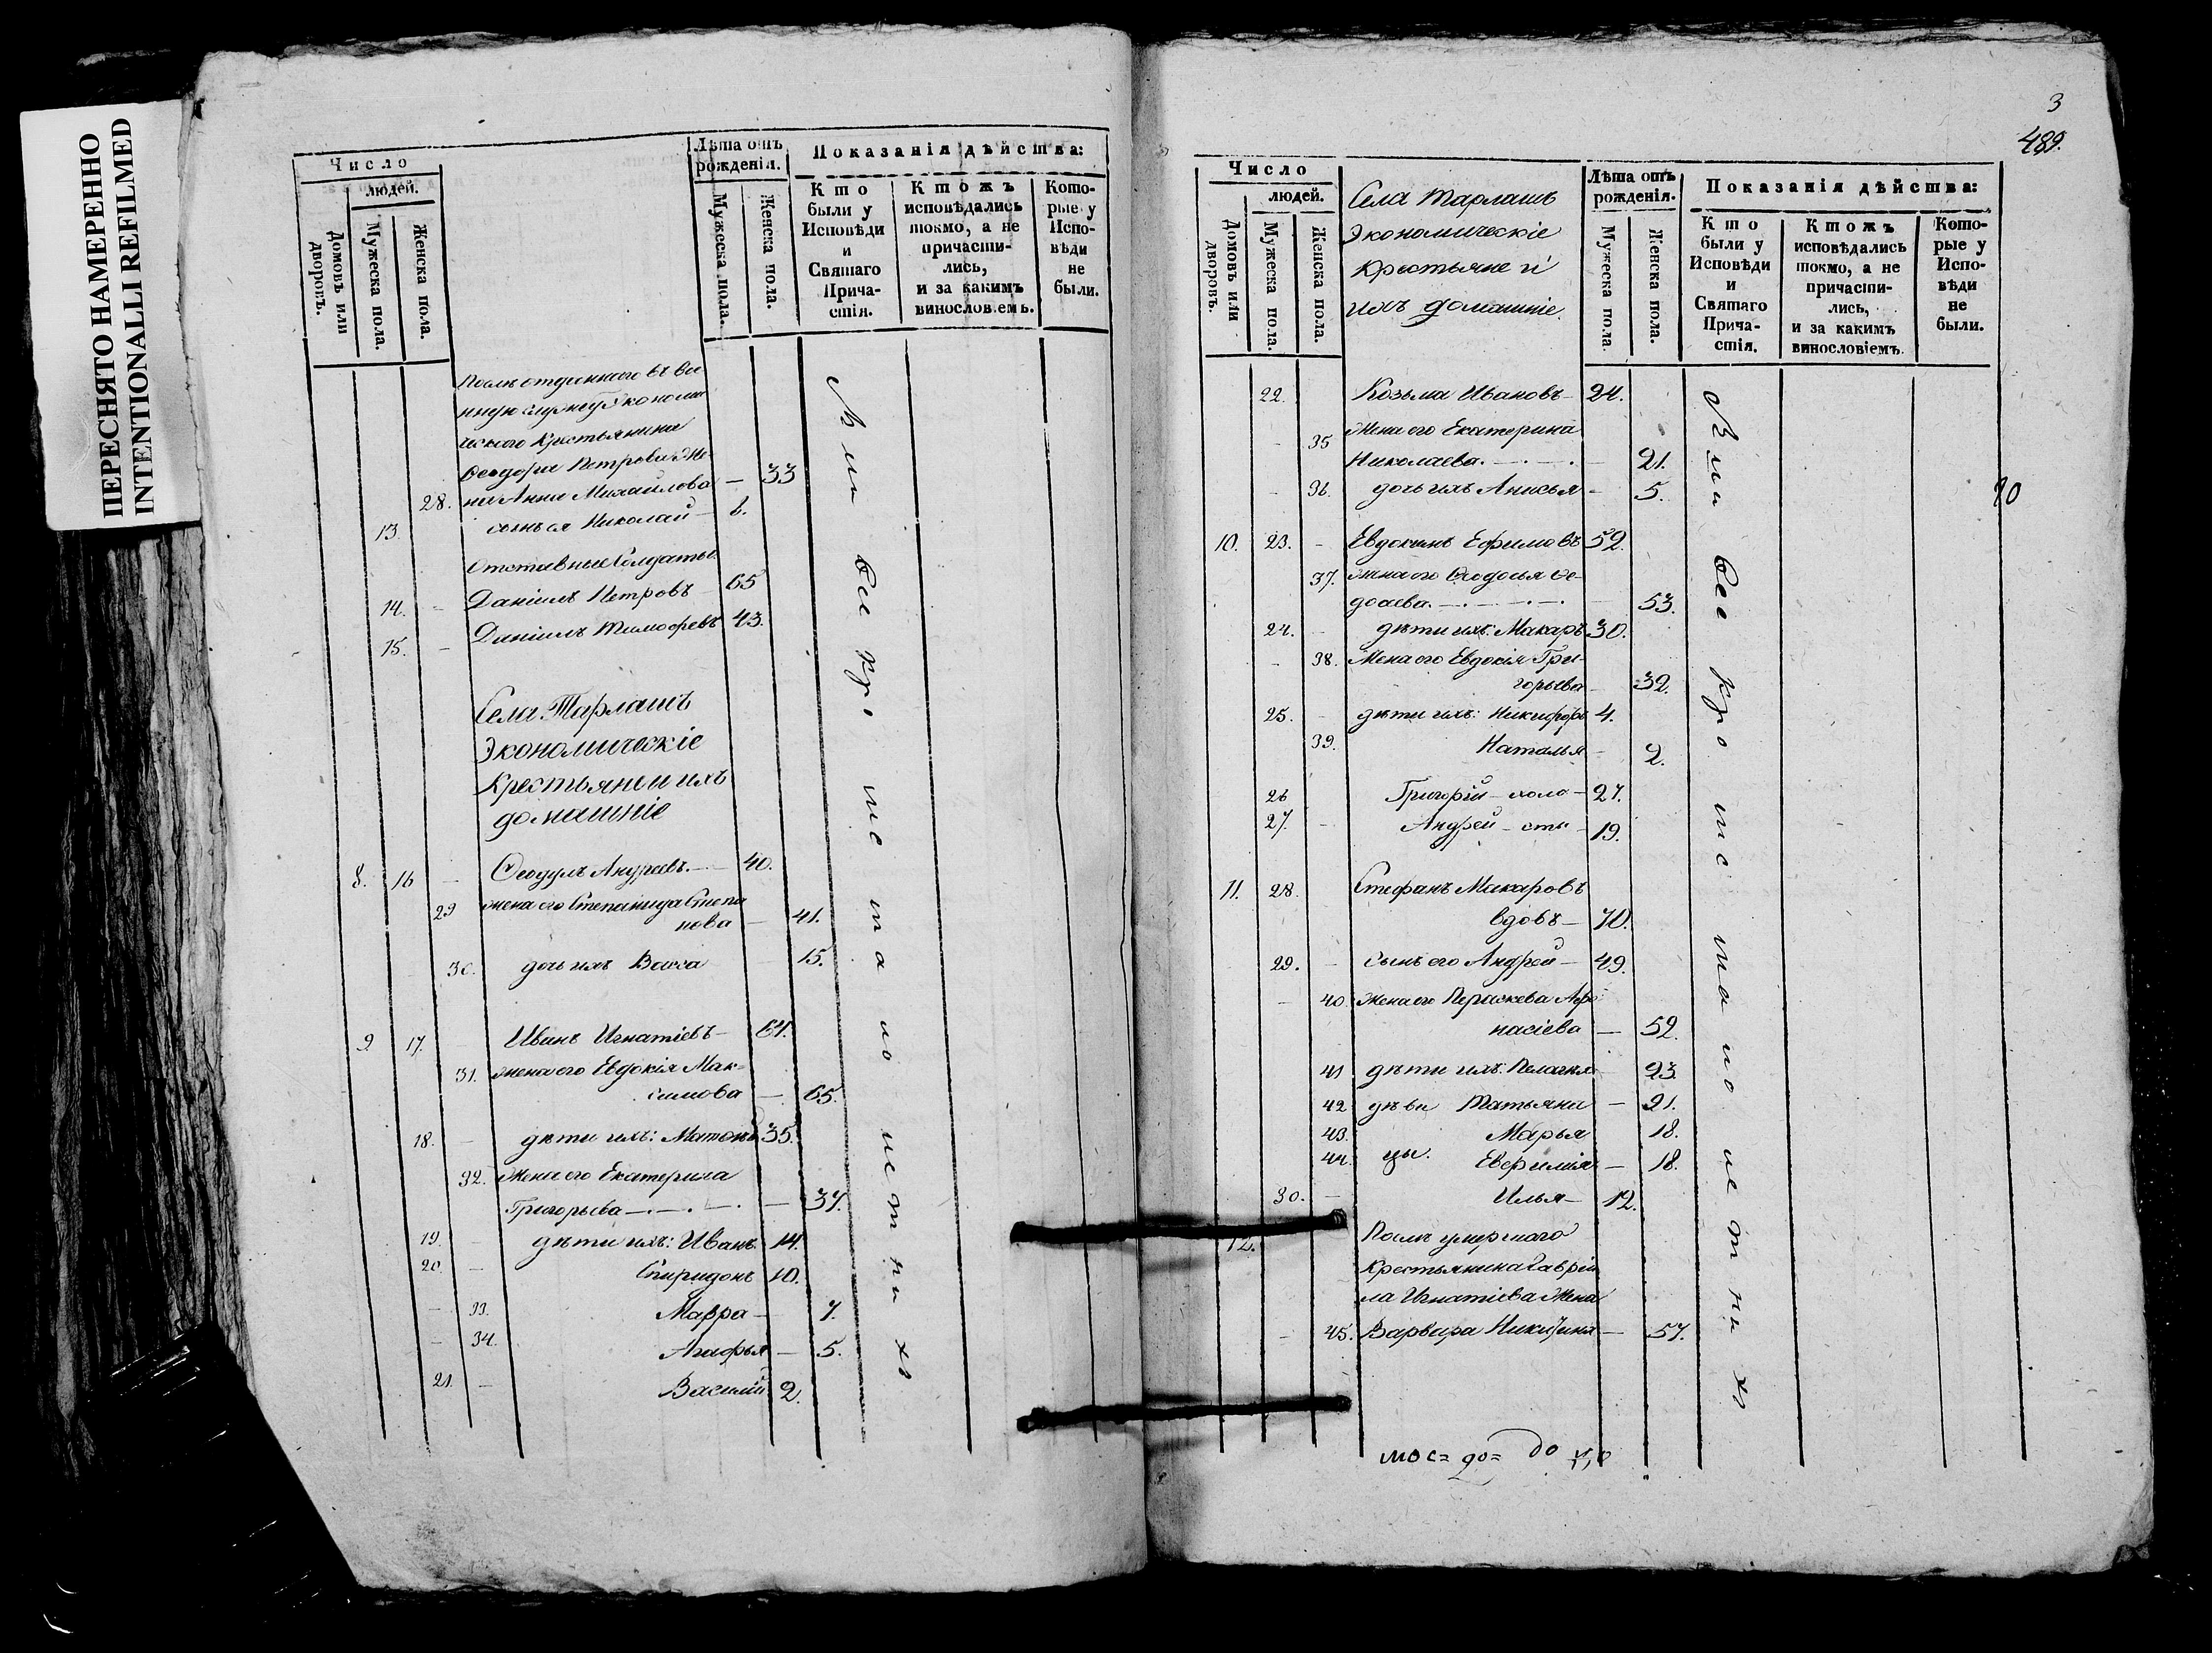 ПЕРЕСНЯТО НАМЕРЕННО
INTENTIONALLI REFILMED
Число
людей.
Домовъ или дворовъ.
Мужеска пола.
Женска пола.
Лѣта отъ рожденія.
Мужеска пола.
Женска пола.
Показанія дѣйства:
Кто были у Исповѣди и Святаго Причастія.
Ктожъ исповѣдались токмо, а не причастились, и за какимъ винословіемъ.
Которые у Исповѣди не были.
Послѣ отданного въ во
нную службу Економи
ческого Крестьянина
Феодора Петрова Же
28. на Анна Михайлова — 33
13. сынъ ея Николай — 6.
Отставные Солдаты.
14. — Даніилъ Петровъ 65
15. — Даніилъ Тимофеевъ 43.
Села Тарлашъ
Экономическіе
Крестьяне и ихъ
домашніе
8. 16 — Феодулъ Андреевъ. — 40.
29 жена его Степанида Степа
нова — 41.
30. дочь ихъ Васса 15.
9 17. Иванъ Игнатіевъ — 64.
31. жена его Евдокія Мак=
симова — 65.
18. — дѣти ихъ: Матвѣй 35.
32. Жена его Екатерина
Григорьева — 37.
19. — дѣти ихъ: Иванъ 14.
20. — Спиридонъ 10.
— 33. Мавра — 7.
— 34. Агафья — 5.
21. — Василій 2.
Вси все кро ме ма ло лет ны хъ
3
489.
Число
людей.
Домовъ или дворовъ.
Мужеска пола.
Женска пола.
Села Тарлашъ
Экономическіе
Крестьяне и
ихъ домашніе.
Лѣта отъ рожденія.
Мужеска пола.
Женска пола.
Показанія дѣйства:
Кто были у Исповѣди и Святаго Причастія.
Ктожъ исповѣдались токмо, а не причастились, и за какимъ винословіемъ.
Которые у Исповѣди не были.
22. Козьма Ивановъ — 24.
— 35 Жена его Екатерина
Николаева. — 21.
— 36. дочь ихъ Анисья — 5.
10. 23. — Евдокимъ Ефимовъ 52.
37. жена его Феодосья Фе-
доаева. — 53.
24. — дѣти ихъ: Макаръ 30.
— 38. Жена его Евдокія Гри-
горьева — 32.
25. — дѣти ихъ: Никифоръ 4.
39. Наталья — 2.
26 Григорій — холо — 27.
27. — Андрей — сты — 19.
11. 28. Стефанъ Макаровъ
вдовъ — 70.
29. — сынъ его Андрей — 49.
— 40. Жена его Параскева Афо
насіева — 52.
41 дѣти ихъ: Пелагия 23.
42 дѣви Татьяна — 21.
43. Марья 18.
44. цы. Евфимія — 18.
30. — Илья — 12.
12. Послѣ умершаго
Крестьянина Гавріи
ла Игнатіева Жена
— 45. Варвара Никитина — 57.
Вси все кро ме ма ло лет ны хъ